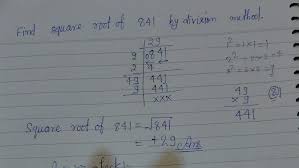 Find square root of 841 by division method.
29
2 | 841
2 | 4
49 | 441
9 | 441
xxx
1² = 1 × 1 = 1
49
× 9
441
Square root of 841 = √841
= +29 Ans